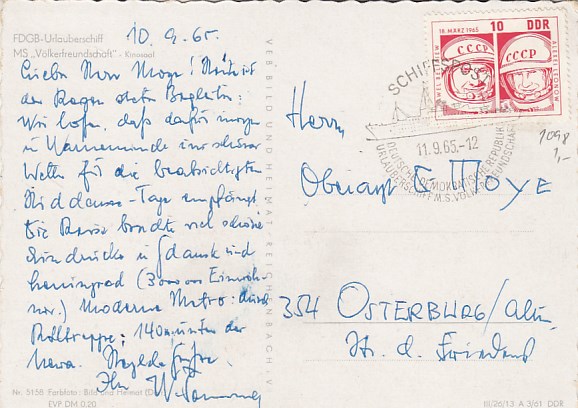 FDGB-Urlauberschiff
MS „Völkerfreundschaft" - Kinosaal
10.9.65.
Lieber Herr Moye!
der Regen steter Begleiter.
Wir hoffen, daß dafür morgen
in Warnemünde schönes
Wetter für die beabsichtigten
Tage empfängt.
Die Reise brachte viel schöne
Eindrücke in Gdansk und
Leningrad (3000000 Einwoh-
ner.) Moderne Metro: durch
Rolltreppe: 140 m unter der
Newa.
Ihr W.
Nr. 5158 Farbfoto: Bild und Heimat
EVP DM 0.20
VEB BILD UND HEIMAT REICHENBACH
18. MÄRZ 1965
10 DDR
CCCP
CCCP
PAWEL BELJAJEW
ALEXEJ LEONOW
SCHIFFSPOST
11.9.65.-12
DEUTSCHE DEMOKRATISCHE REPUBLIK
URLAUBERSCHIFF M.S. VÖLKERFREUNDSCHAFT
1098
1,-
Herrn
Oberarzt G. MOYE
354 OSTERBURG/Altm.
Str. d. Friedens
III/26/13 A 3/61 DDR